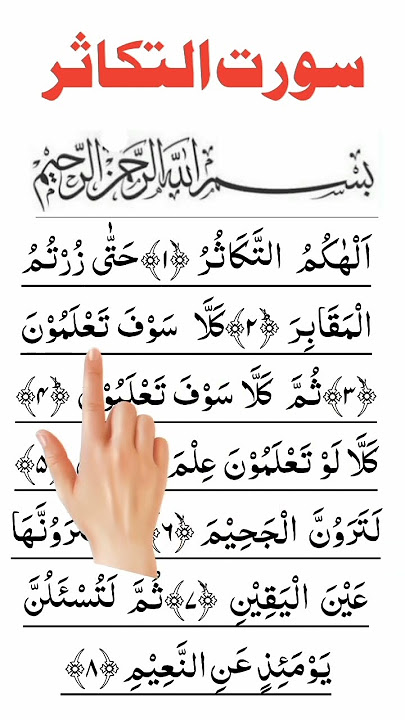 سورت التکاثر
بِسْمِ اللَّهِ الرَّحْمَٰنِ الرَّحِيمِ
اَلْهٰكُمُ التَّكَاثُرُ ﴿١﴾ حَتّٰى زُرْتُمُ
الْمَقَابِرَ ﴿٢﴾ كَلَّا سَوْفَ تَعْلَمُوْنَ
﴿٣﴾ ثُمَّ كَلَّا سَوْفَ تَعْلَمُوْنَ ﴿۴﴾
كَلَّا لَوْ تَعْلَمُوْنَ عِلْمَ ﴿۵﴾
لَتَرَوُنَّ الْجَحِيْمَ ﴿٦﴾
عَيْنَ الْيَقِيْنِ ﴿٧﴾ ثُمَّ لَتُسْئَلُنَّ
يَوْمَئِذٍ عَنِ النَّعِيْمِ ﴿٨﴾